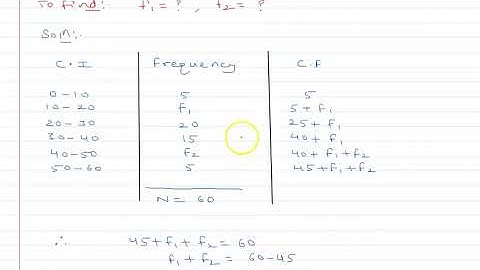 To find:. f₁ = ? , f₂ = ?
Soln:.
C.I Frequency C.F
0-10 5 5
10-20 f₁ 5+f₁
20-30 20 25+f₁
30-40 15 40+f₁
40-50 f₂ 40+f₁+f₂
50-60 5 45+f₁+f₂
N = 60
∴ 45+f₁+f₂ = 60
f₁+f₂ = 60-45